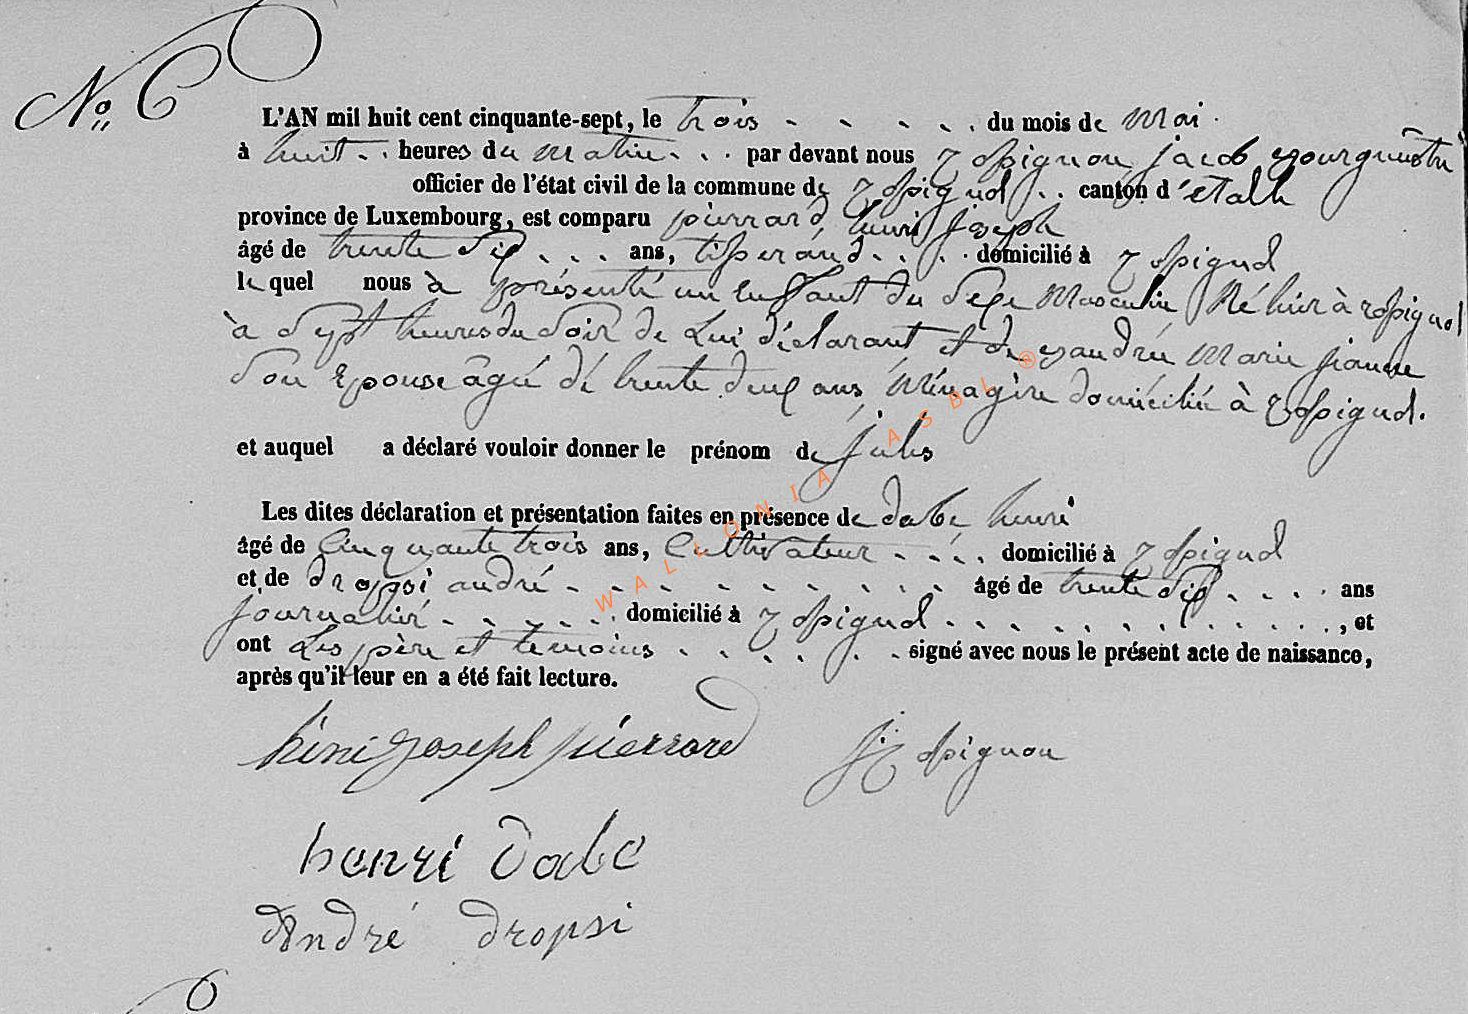 No 6
L'AN mil huit cent cinquante-sept, le trois - - - - - du mois de mai
à huit - . heures du matin - . . par devant nous jacob
officier de l'état civil de la commune de . . canton d'étalle
province de Luxembourg, est comparu pierrard henri joseph
âgé de trente six . . . ans, tisserand . . . . domicilié à
lequel nous à présenté un enfant du sexe masculin Né hier à
à sept heures du soir de Lui déclarant et de marie jeanne
son Epouse âgée dé trente deux ans Ménagère domiciliée à
et auquel a déclaré vouloir donner le prénom de jules
Les dites déclaration et présentation faites en présence de dabe henri
âgé de Cinquante trois ans, Cultivateur - . . . domicilié à
et de dropsi andré - - - - - - - - - âgé de trente six . . . . ans
journalier - - - - - . domicilié à . . . . . . . . . . . . , et
ont Les père et temoins . . . . . . signé avec nous le présent acte de naissance,
après qu'il leur en a été fait lecture.
hénri joseph pierrard
henri dabe
André dropsi
WALLONIA ASBL ®